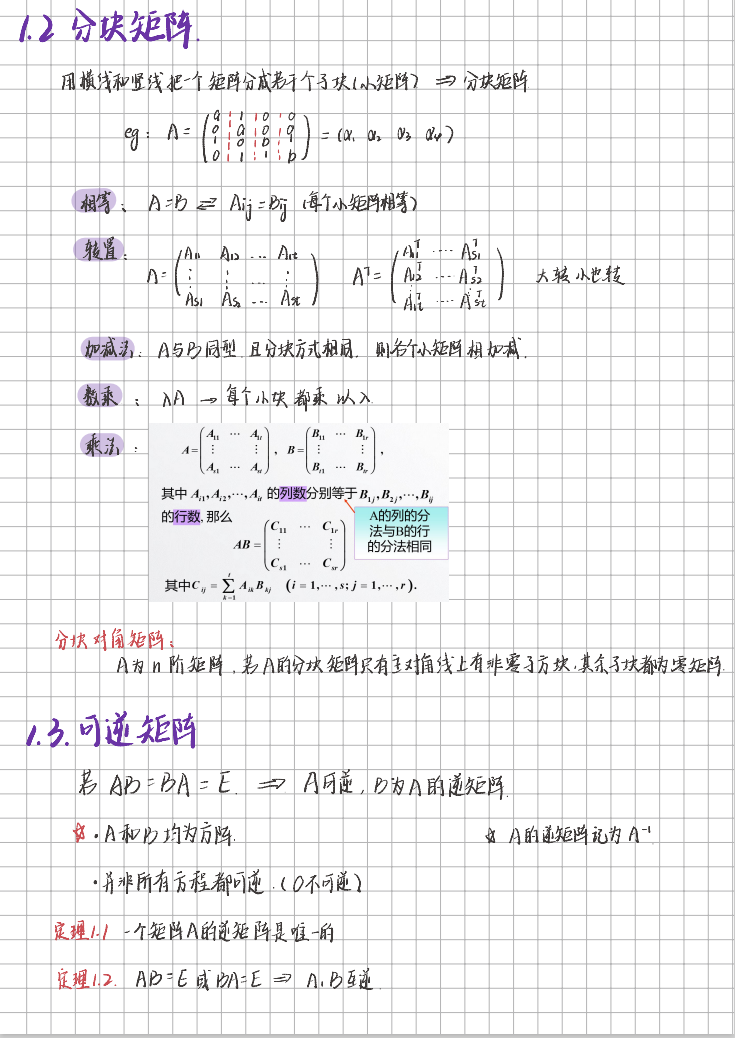 1.2 分块矩阵.
用横线和竖线把一个矩阵分成若干个子块(小矩阵) ⇒ 分块矩阵
eg: A = ( a 1 0 0 ; 0 a 0 0 ; 1 0 b 1 ; 0 1 1 b ) = (α₁ α₂ α₃ α₄)
相等: A=B ⇌ Aij=Bij (每个小矩阵相等)
转置: A = ( A11 A12 … A1t ; ⋮ ⋮ ⋮ ; As1 As2 … Ast ) Aᵀ = ( A11ᵀ … As1ᵀ ; A12ᵀ … As2ᵀ ; ⋮ ⋮ ; A1tᵀ … Astᵀ ) 大转小也转
加减法: A与B同型,且分块方式相同, 则各个小矩阵相加减.
数乘: λA → 每个小块都乘以λ
乘法: A = ( A11 ⋯ A1t ; ⋮ ⋮ ; As1 ⋯ Ast ) , B = ( B11 ⋯ B1r ; ⋮ ⋮ ; Bt1 ⋯ Btr ) ,
其中 Ai1, Ai2, ⋯, Ait 的列数分别等于 B1j, B2j, ⋯, Bij
的行数, 那么
A的列的分
法与B的行
的分法相同
AB = ( C11 ⋯ C1r ; ⋮ ⋮ ; Cs1 ⋯ Csr )
其中 Cij = ∑ₖ₌₁ᵗ Aik Bkj (i = 1,⋯,s; j = 1,⋯,r).
分块对角矩阵:
A为n阶矩阵,若A的分块矩阵只有主对角线上有非零子方块,其余子块都为零矩阵.
1.3.可逆矩阵
若 AB=BA=E. ⇒ A可逆,B为A的逆矩阵.
☆ ·A和B均为方阵. ☆ A的逆矩阵记为A⁻¹.
·并非所有方程都可逆.(0不可逆)
定理1.1 一个矩阵A的逆矩阵是唯一的
定理1.2. AB=E或BA=E ⇒ A,B互逆.